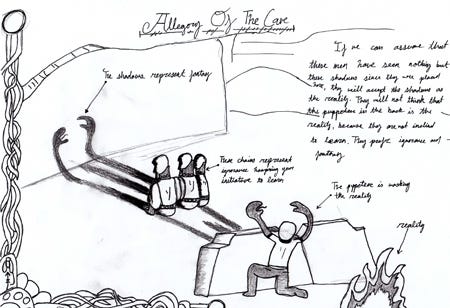 Allegory Of The Cave
The shadows represent fantasy
If we can assume that
these men have seen nothing but
these shadows since they were placed
here, they will accept the shadows as
the reality. They will not think that
the puppeteer in the back is the
reality, because they are not inclined
to learn. They prefer ignorance and
fantasy.
These chains represent
ignorance hampering your
initiative to learn
The puppeteer is working
the reality
reality